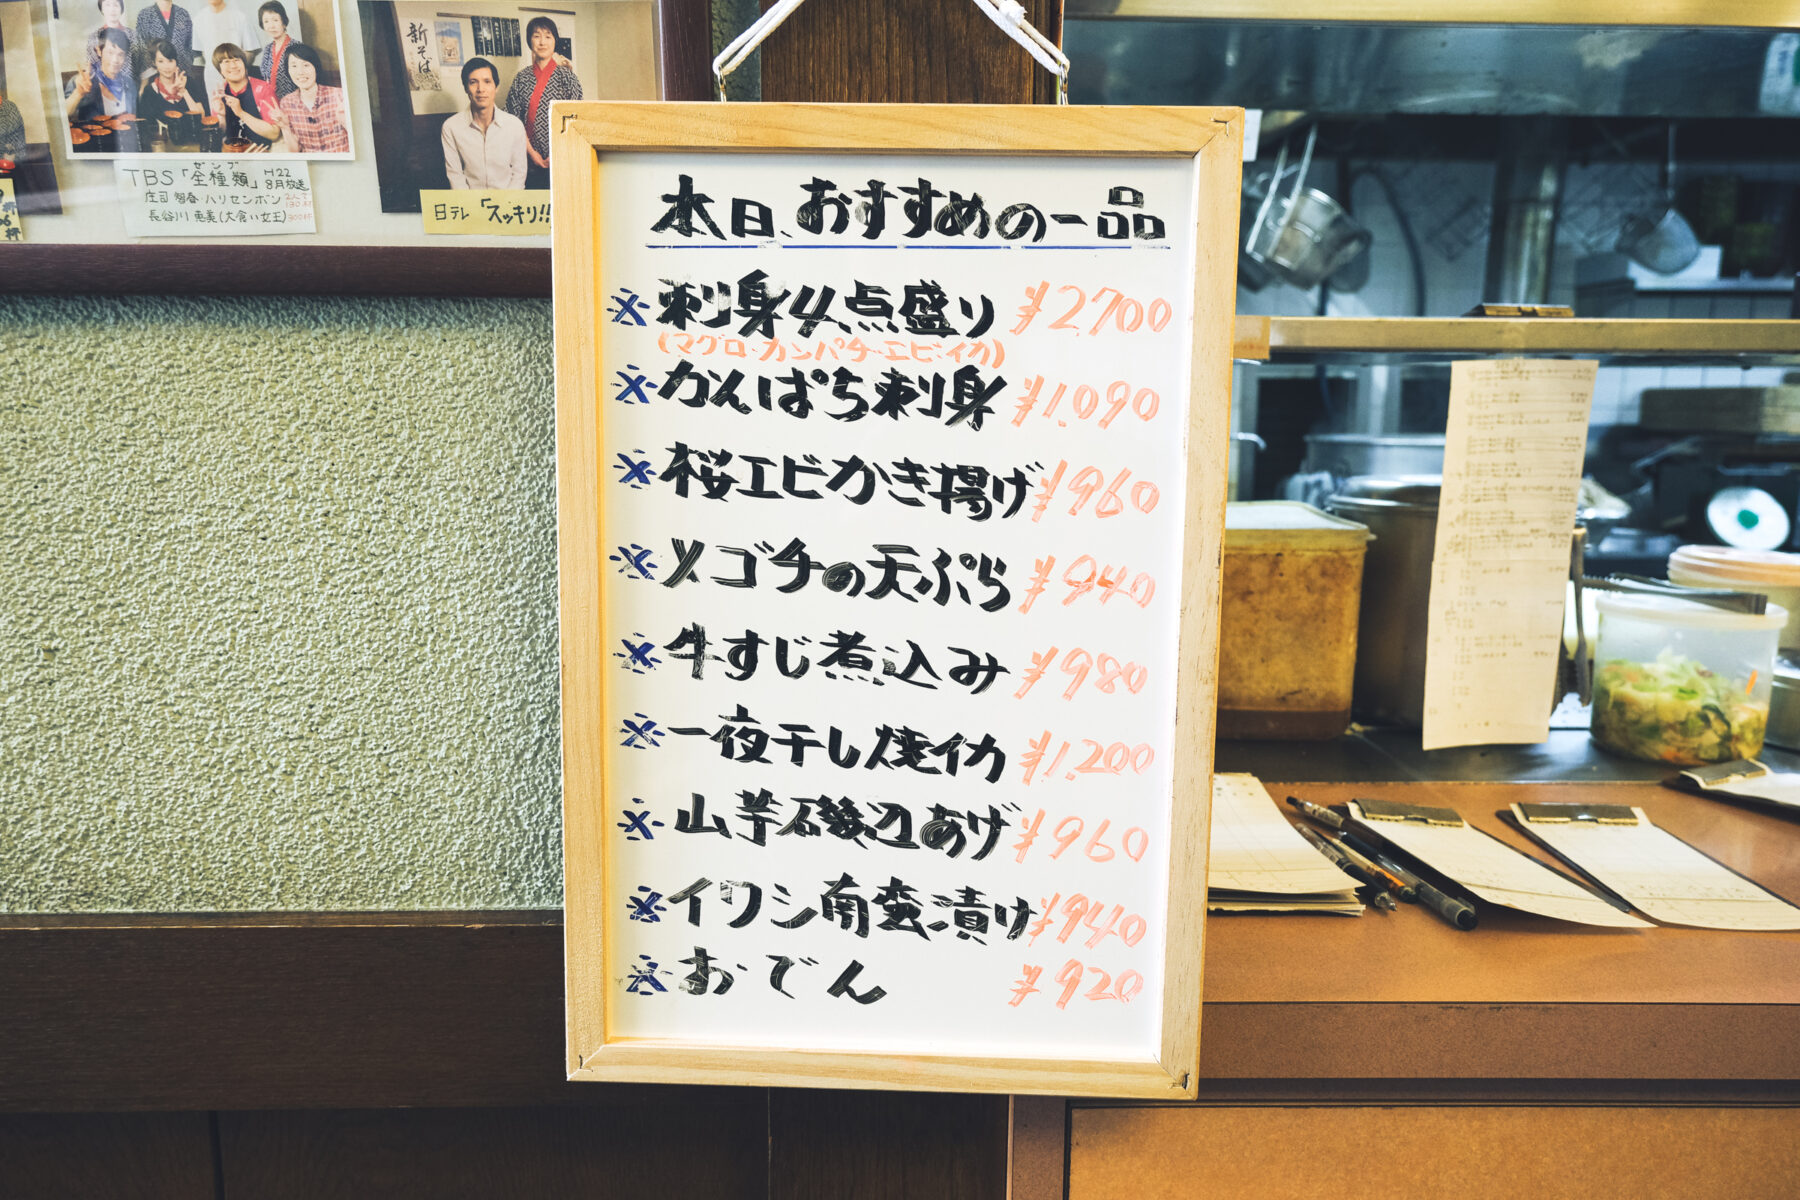 新そば
ゼンブ
TBS「全種類」H22 8月放送
庄司 智春・ハリセンボン 2人で130杯
長谷川 恵美(大食い女王)300杯
日テレ「スッキリ!!
本日、おすすめの一品
※ 刺身4点盛り ¥2700
(マグロ・カンパチ・エビ・イカ)
※ かんぱち刺身 ¥1.090
※ 桜エビかき揚げ ¥960
※ メゴチの天ぷら ¥940
※ 牛すじ煮込み ¥980
※ 一夜干し焼イカ ¥1.200
※ 山芋磯辺あげ ¥960
※ イワシ南蛮漬け ¥940
※ おでん ¥920